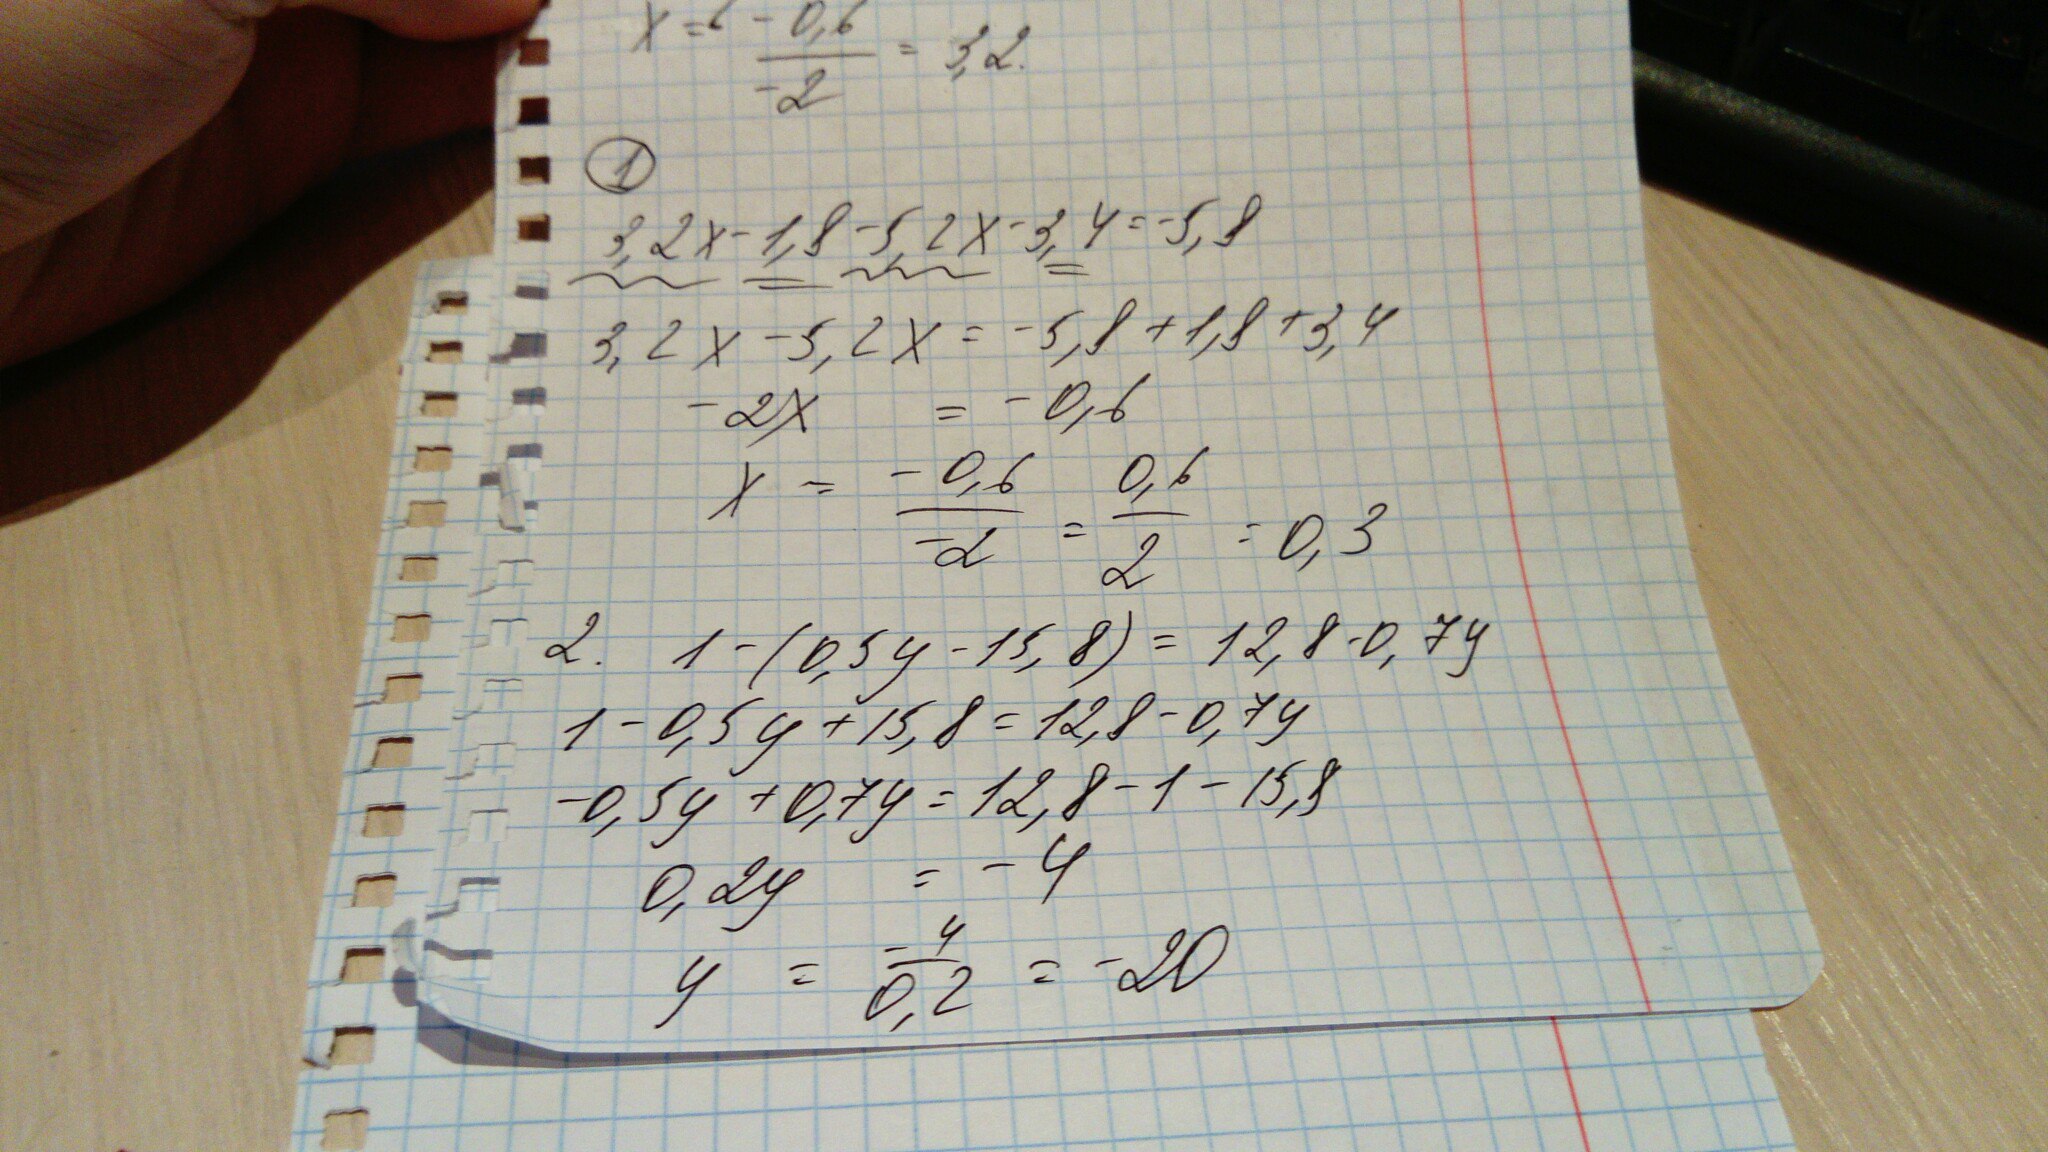 x = -0,6/-2 = 3,2.
1
3,2x - 1,8 - 5,2x - 3,4 = -5,8
3,2x - 5,2x = -5,8 + 1,8 + 3,4
-2x = -0,6
x = -0,6/-2 = 0,6/2 = 0,3
2. 1 - (0,5y - 15,8) = 12,8 - 0,7y
1 - 0,5y + 15,8 = 12,8 - 0,7y
-0,5y + 0,7y = 12,8 - 1 - 15,8
0,2y = -4
y = -4/0,2 = -20